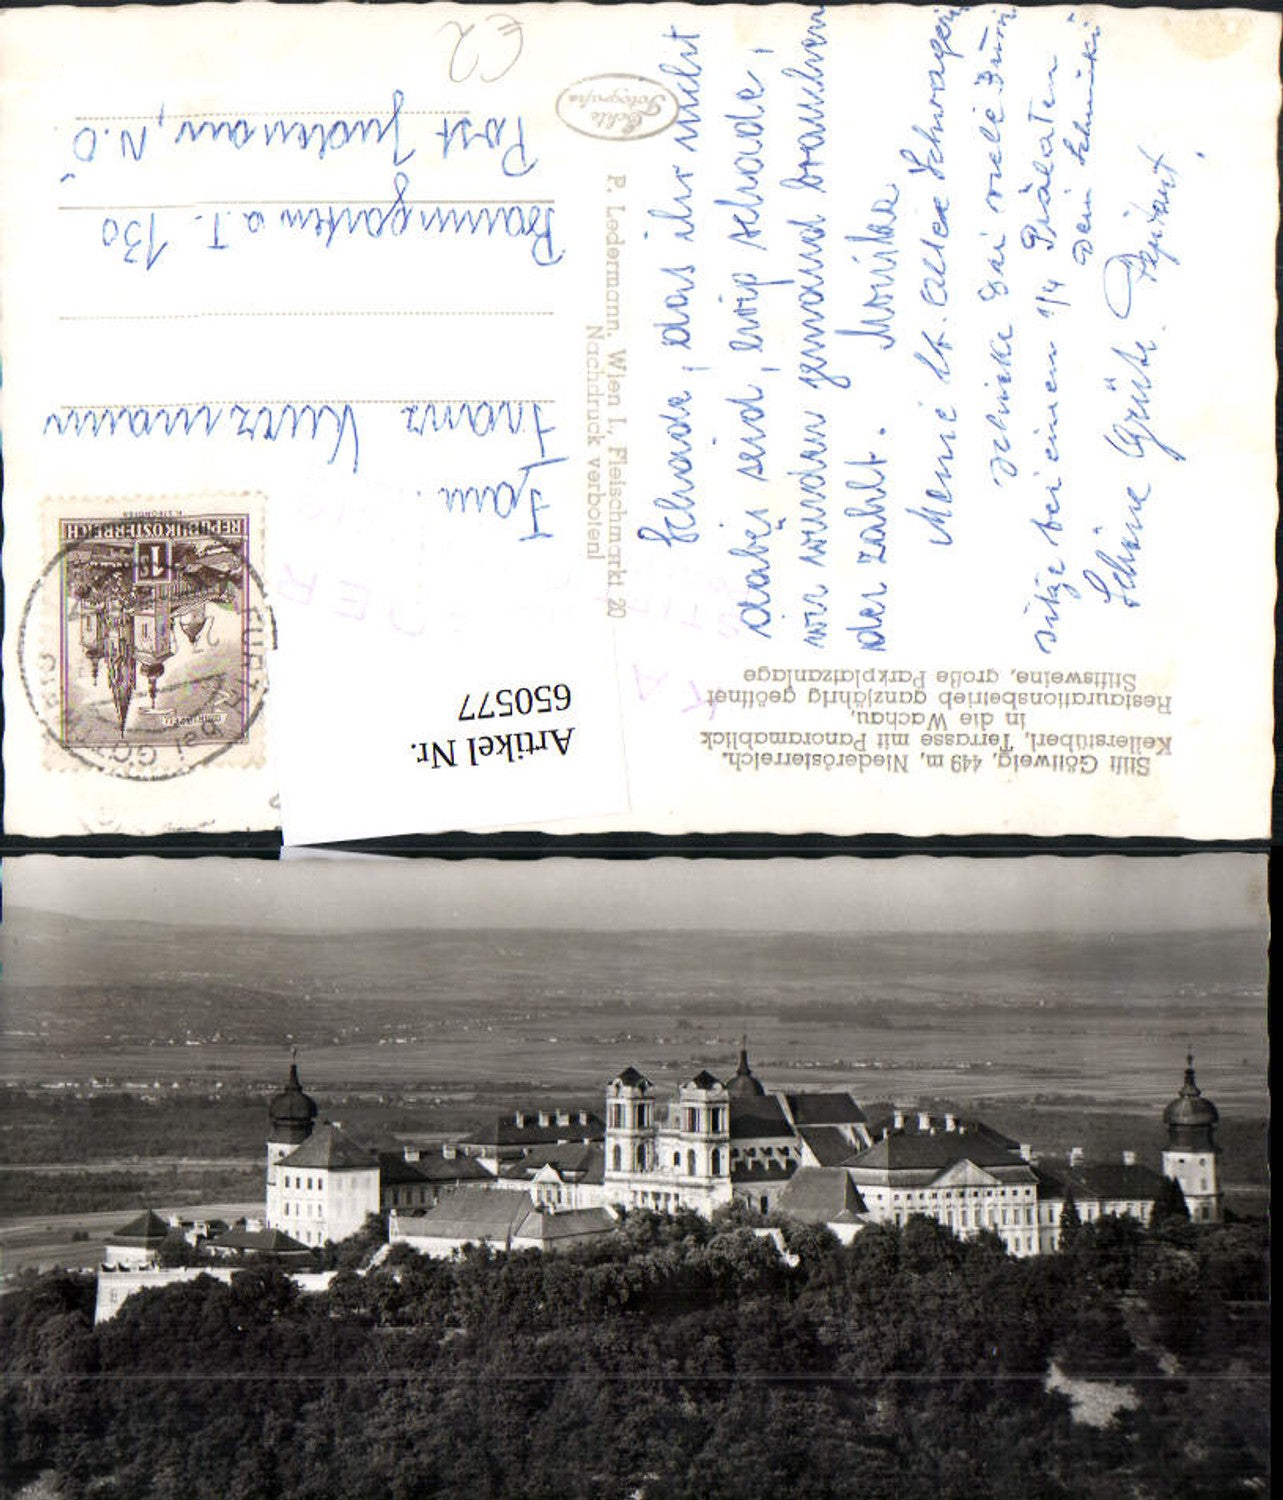 Stift Göttweig, 449 m, Niederösterreich.
Kellerstüberl, Terrasse mit Panoramablick
in die Wachau,
Restaurationsbetrieb ganzjährig geöffnet
Stiftsweine, große Parkplatzanlage
Schade, das ihr nicht
dabei seid, ewig schade,
wir wurden jemand brauchen
der zahlt. Monika
Meine lb. alte Schwagerin
schicke Dir viele
sitze bei einem 1/4 Prälaten
Dein
Schöne Grüße
P. Ledermann, Wien I., Fleischmarkt 20
Nachdruck verboten!
Echte
Fotografie
Artikel Nr.
650577
REPUBLIK ÖSTERREICH
1
MARIAZELL
FURTH bei GÖTTWEIG
Fam.
Franz Kurzmann
Baumgarten a. T. 130
Post Judenau, N.Ö.
€2